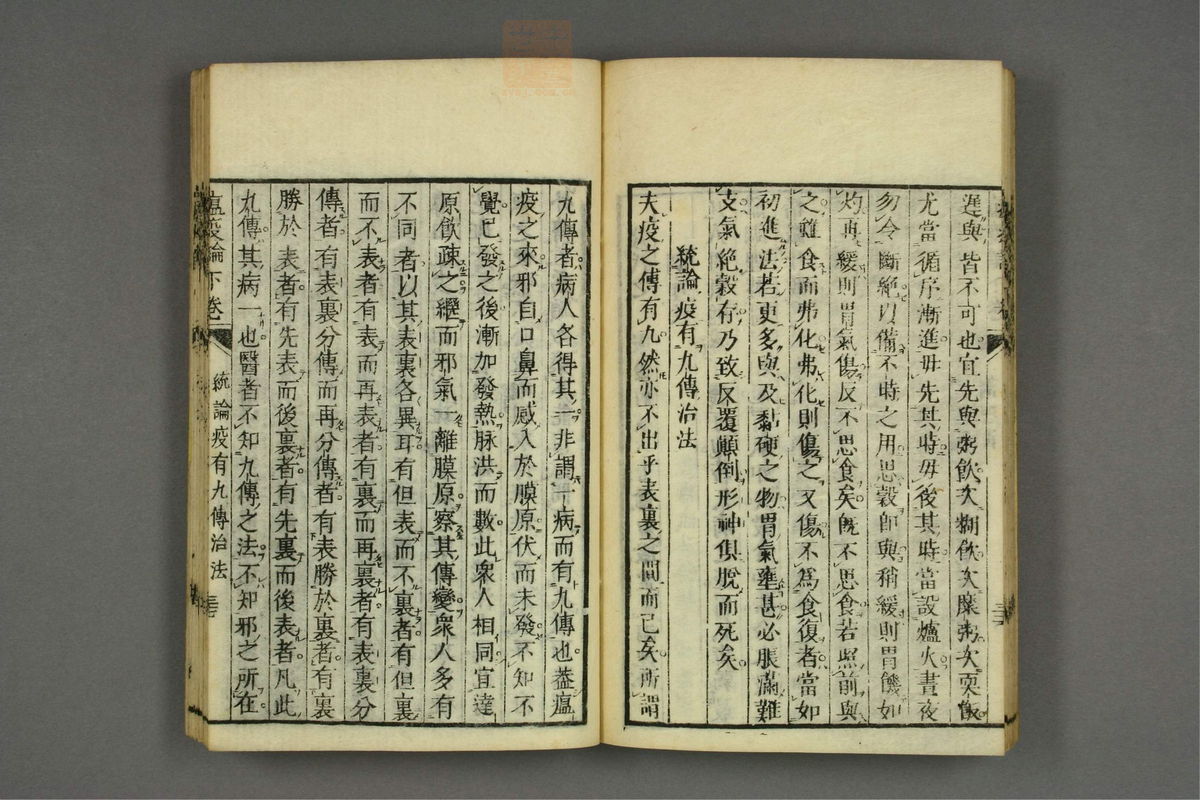 遲與皆不可也宜先與粥飲次糊飲次糜粥次耎飯
尤當循序漸進毋先其時毋後其時當設爐火晝夜
勿令斷絕以備不時之用思穀即與稍緩則胃饑如
灼再緩則胃氣傷反不思食矣既不思食若照前與
之雖食而弗化弗化則傷之又傷不為食復者當如
初進法若更多與及黏硬之物胃氣壅甚必脹滿難
支氣絕穀存乃致反覆顛倒形神俱脫而死矣
統論疫有九傳治法
夫疫之傳有九然亦不出乎表裏之間而已矣所謂
九傳者病人各得其一非謂一病而有九傳也葢瘟
疫之來邪自口鼻而感入於膜原伏而未發不知不
覺已發之後漸加發熱脉洪而數此衆人相同宜達
原飲疎之繼而邪氣一離膜原察其傳變衆人多有
不同者以其表裏各異耳有但表而不裏者有但裏
而不表者有表而再表者有裏而再裏者有表裏分
傳者有表裏分傳而再分傳者有表勝於裏者有裏
勝於表者有先表而後裏者有先裏而後表者凡此
九傳其病一也醫者不知九傳之法不知邪之所在
瘟疫論下卷 統論疫有九傳治法